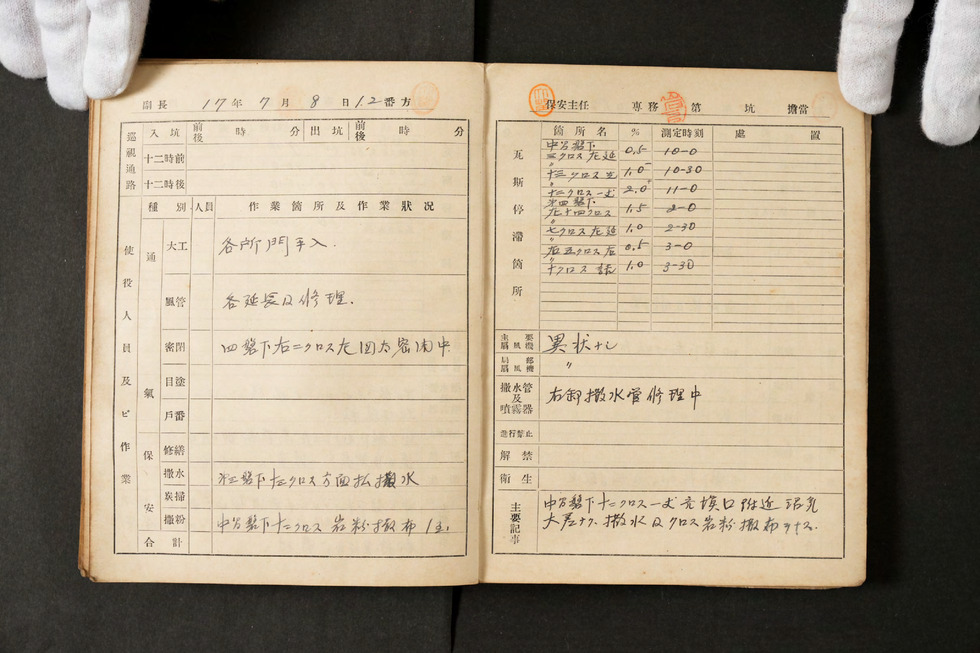 副長 17年 7月 8日 1.2番方
巡視通路
入坑 前後 時 分 出坑 前後 時 分
十二時前
十二時後
使役人員及ビ作業
種別 人員 作業箇所及作業狀況
通氣
大工 各所門手入.
風管 各延長及修理.
密閉 四盤下右二クロス左 密閉中
目塗
戶番
保安
修繕
撒水 盤下十三クロス方面払撒水
炭掃
撒粉 中 盤下十二クロス 岩粉撒布
合計
保安主任 專務 第 坑 擔當
瓦斯停滯箇所
箇所名 % 測定時刻 處置
三クロス左延 0.5 10-0
〃 十三クロス 1.0 10-30
〃 十二クロス 2.0 11-0
第四盤下
左十四クロス 1.5 2-0
〃 七クロス左延 1.0 2-30
右五クロス左 0.5 3-0
〃 クロス 1.0 3-30
主要扇風機 異状ナシ
局部扇風機 〃
撒水管及噴霧器 右卸撒水管修理中
進行禁止
解禁
衛生
主要記事
中 盤下十二クロス 附近
大 ナク. 撒水及クロス岩粉撒布